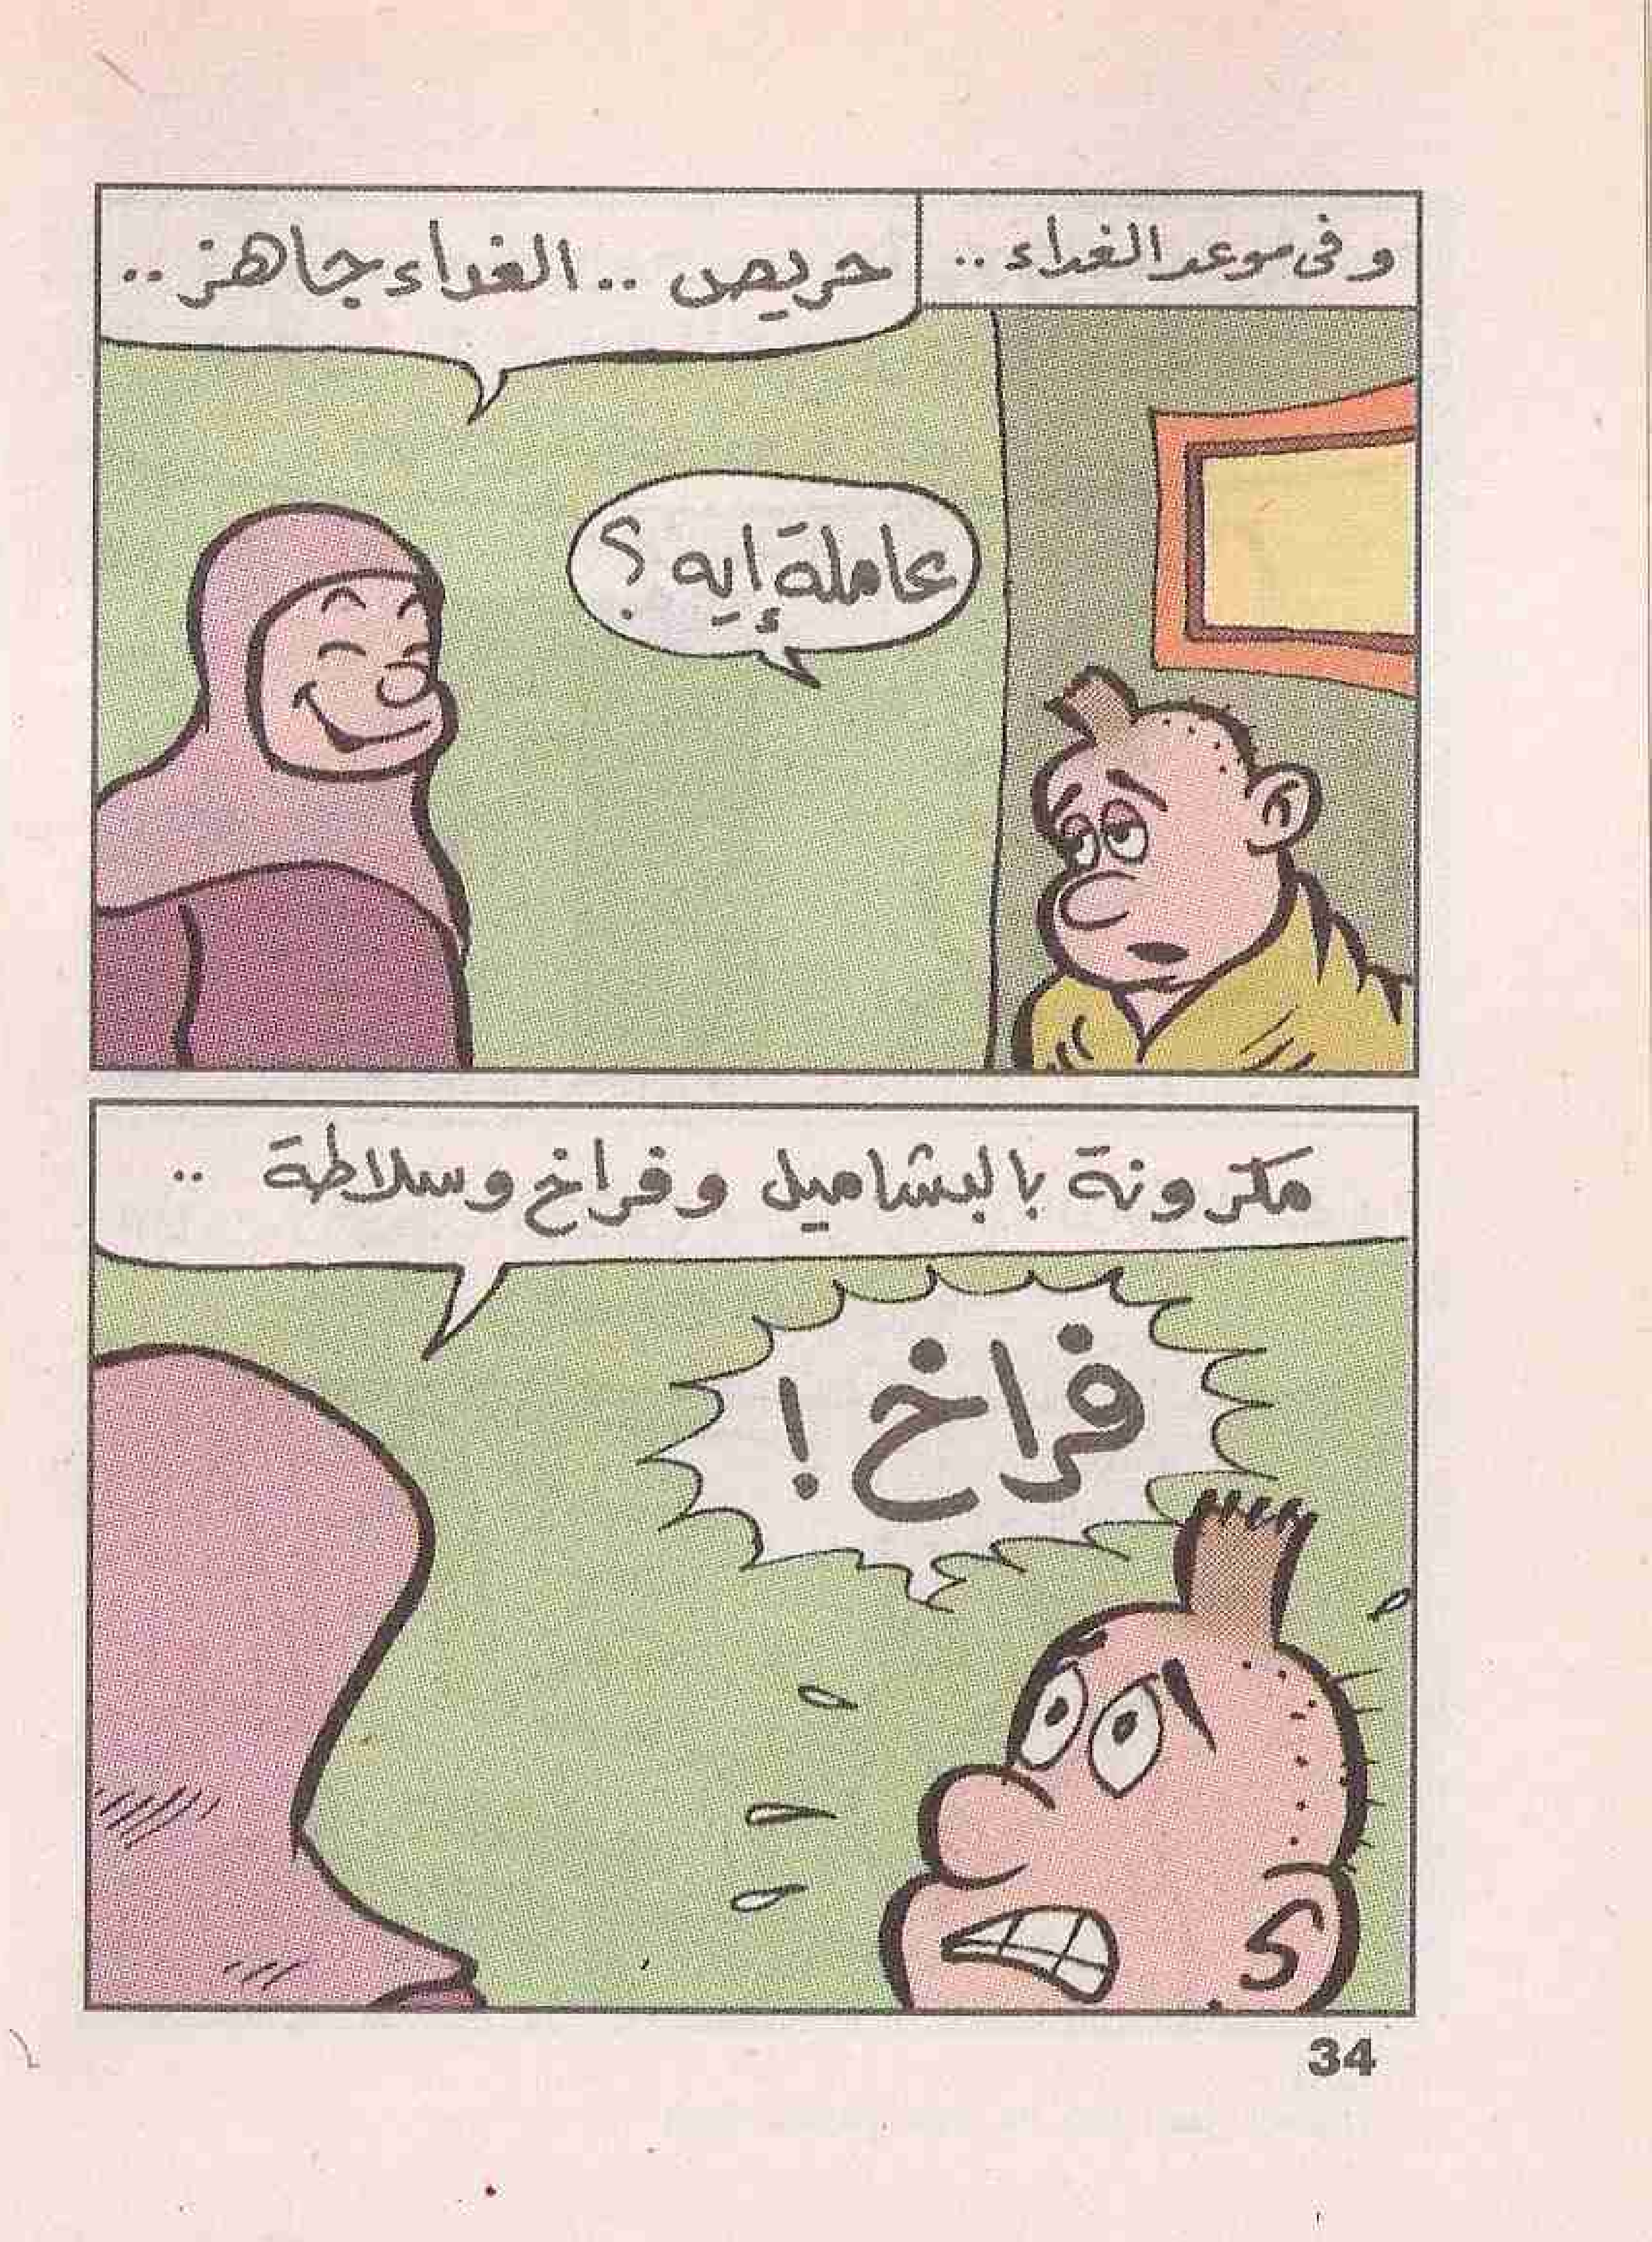 وفى موعد الغداء ..
حريص .. الغداء جاهز ..
عاملة إيه ؟
مكرونة بالبشاميل وفراخ وسلاطة ..
فراخ !
34